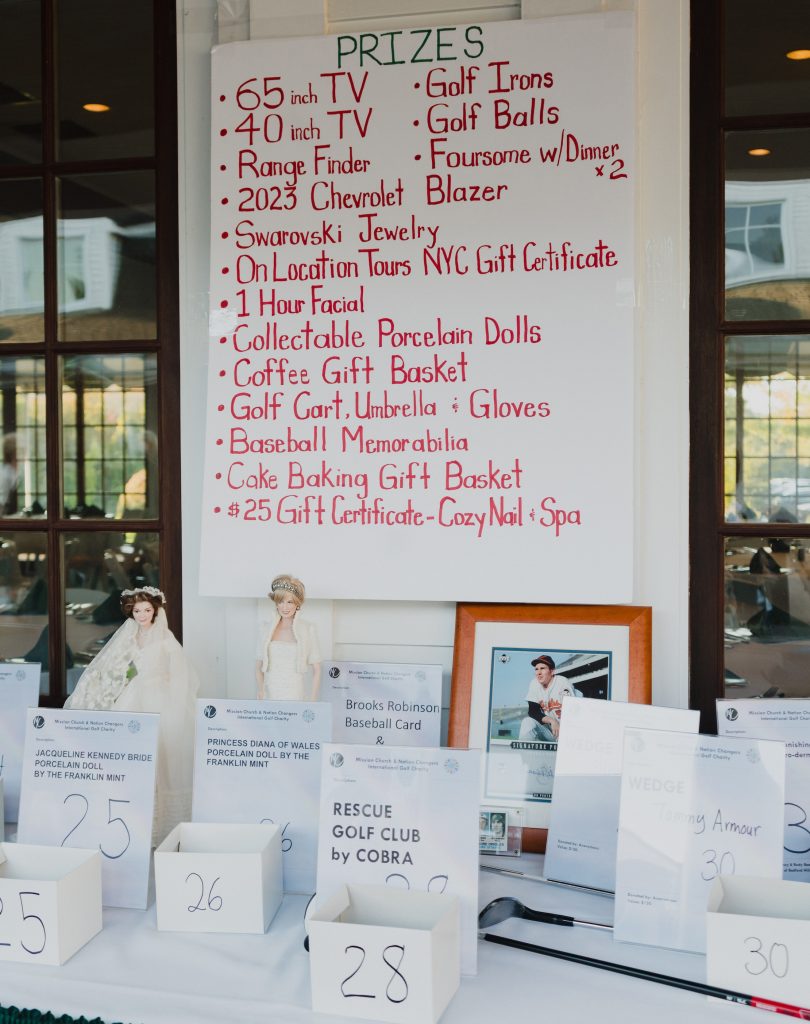 PRIZES
• 65 inch TV
• 40 inch TV
• Range Finder
• Golf Irons
• Golf Balls
• Foursome w/Dinner
x2
• 2023 Chevrolet Blazer
• Swarovski Jewelry
• On Location Tours NYC Gift Certificate
• 1 Hour Facial
• Collectable Porcelain Dolls
• Coffee Gift Basket
• Golf Cart, Umbrella & Gloves
• Baseball Memorabilia
• Cake Baking Gift Basket
• $25 Gift Certificate - Cozy Nail & Spa
Mission Church & Nation Changers
International Golf Charity
Description:
JACQUELINE KENNEDY BRIDE
PORCELAIN DOLL
BY THE FRANKLIN MINT
25
Mission Church & Nation Changers
International Golf Charity
Description:
PRINCESS DIANA OF WALES
PORCELAIN DOLL BY THE
FRANKLIN MINT
26
Mission Church & Nation Changers
International Golf Charity
Brooks Robinson
Baseball Card
&
Mission Church & Nation Changers
International Golf Charity
Description:
RESCUE
GOLF CLUB
by COBRA
28
SIGNATURE
WEDGE
WEDGE
Tommy Armour
30
Mission Church & Nation
International Golf
Description:
3
25
26
28
30